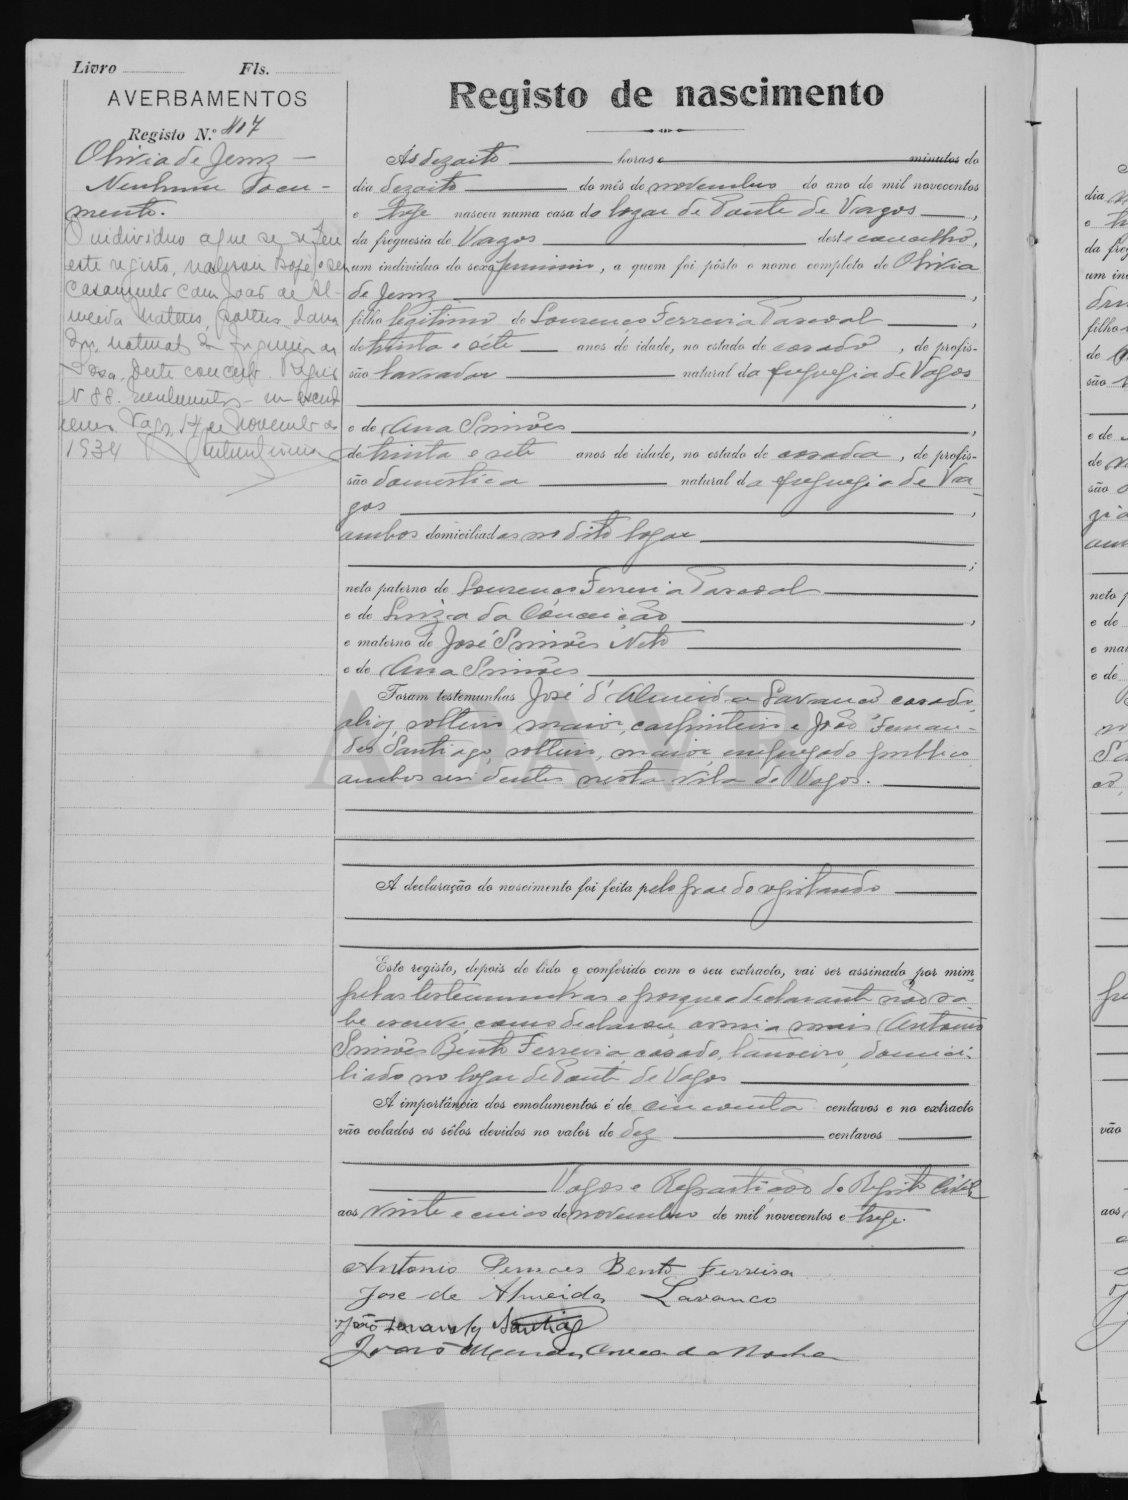 Livro Fls.
AVERBAMENTOS
Registo N.º 117
Olivia de Jesus —
Nenhum docu-
mento.
O individuo a que se refere
este registo, realisou hoje o seu
casamento com João de Al-
meida Mateus, solteiro,
natural da freguesia de
Sosa, deste concelho. Registo
Nº 88. Emolumentos -
Vagos, 17 de Novembro de
1934
Registo de nascimento
Ás dezoito horas e minutos do
dia dezoito do mês de novembro do ano de mil novecentos
e treze nasceu numa casa do logar de Ponte de Vagos ,
da freguesia de Vagos deste concelho,
um individuo do sexo feminino, a quem foi pôsto o nome completo de Olivia
de Jesus ,
filho legitimo de Lourenço Ferreira Pascoal ,
de trinta e sete anos de idade, no estado de casado , de profis-
são lavrador natural da freguesia de Vagos
,
e de Ana Simões ,
de trinta e sete anos de idade, no estado de casada , de profis-
são domestica natural da freguesia de Va-
gos ,
ambos domiciliados no dito logar
;
neto paterno de Lourenço Ferreira Pascoal
e de Luiza da Conceição ,
e materno de José Simões Neto
e de Ana Simões
Foram testemunhas José d'Almeida Lavanco casado,
solteiro, maior, carpinteiro e João Fernan-
des Santiago, solteiro, maior, empregado publico
ambos residentes nesta vila de Vagos.
A declaração do nascimento foi feita pelo pae do registando
Este registo, depois de lido e conferido com o seu extracto, vai ser assinado por mim
pelas testemunhas e porque o declarante não sa-
be escrever, como declarou, assina mais Antonio
Simões Bento Ferreira, casado, tanoeiro, domici-
liado no logar de Ponte de Vagos
A importância dos emolumentos é de cincoenta centavos e no extracto
vão colados os sêlos devidos no valor de dez centavos
Vagos e Repartição do Registo Civil
aos vinte e cinco de novembro de mil novecentos e treze.
Antonio Simoes Bento Ferreira
Jose de Almeida Lavanco
João Fernandes Santiago
João Mendes Correa da Rocha
ADAVR